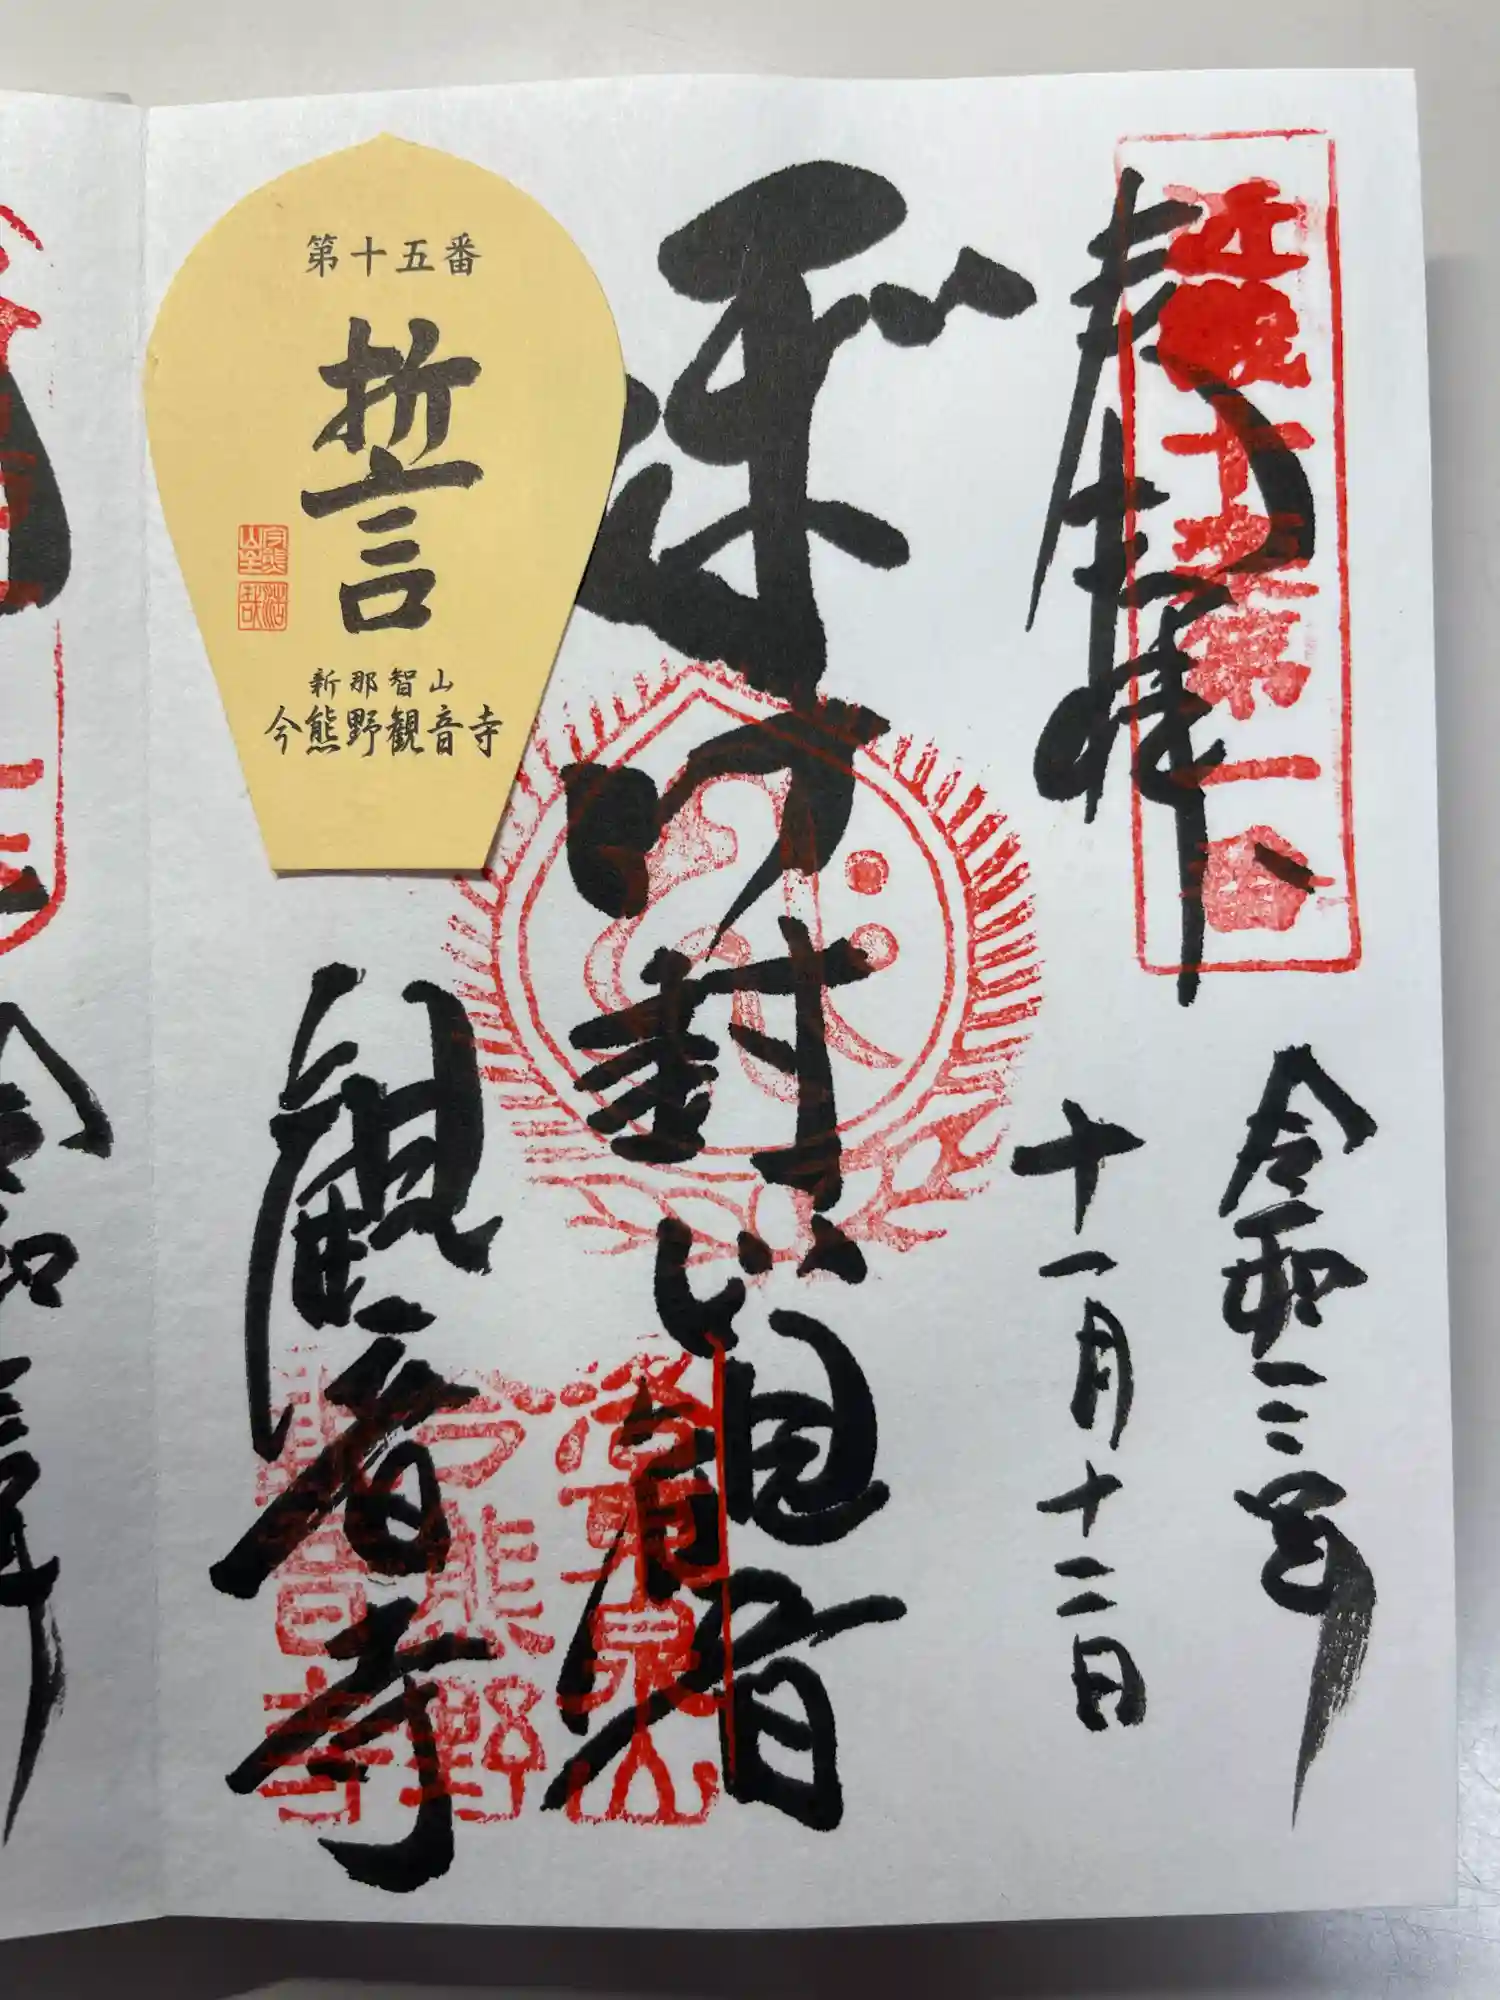 近畿十楽第一番
奉拝
令和三年
十一月十二日
ぼけ封じ観音
洛東泉山
今熊野
観音寺
観音寺
第十五番
誓
新那智山
今熊野観音寺